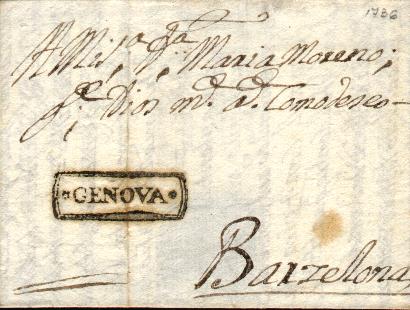 1786
A Mi S.ª D.ª Maria Moreno;
g.e Dios m.s a.s Como deseo—
GENOVA
Barzelona